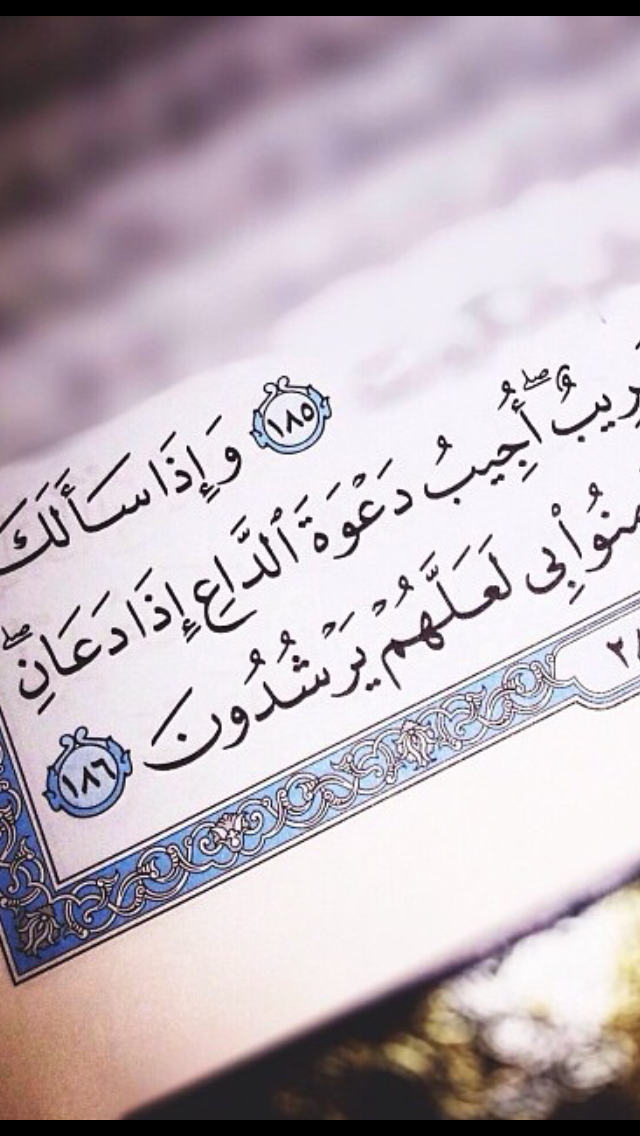 ١٨٥ وَإِذَا سَأَلَكَ
رِيبٌ ۖ أُجِيبُ دَعْوَةَ ٱلدَّاعِ إِذَا دَعَانِ ۖ
مِنُوا۟ بِى لَعَلَّهُمْ يَرْشُدُونَ ١٨٦